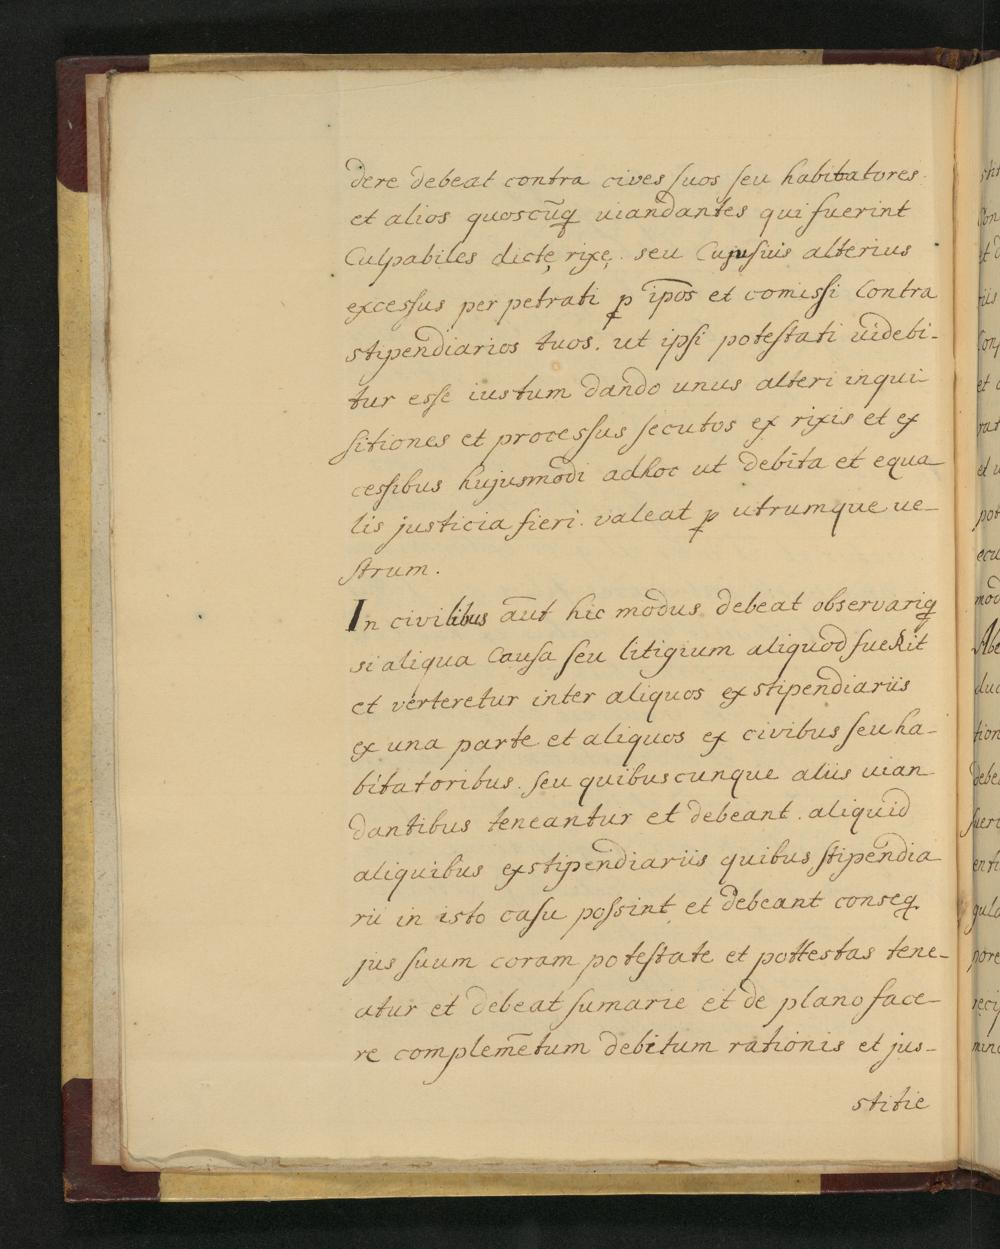 dere debeat contra cives suos seu habitatores
et alios quoscūq uiandantes qui fuerint
Culpabiles dictę rixę. seu Cujusuis alterius
excessus perpetrati ꝑ ip̄os et comissi Contra
stipendiarios tuos. ut ipsi potestati uidebi-
tur esse iustum dando unus alteri inqui-
sitiones et processus secutos ex rixis et ex
cessibus hujusmodi adhoc ut debita et equa-
lis justicia fieri. valeat ꝑ utrumque ue-
strum.
In civilibus aūt hic modus debeat observari q
si aliqua Causa seu litigium aliquod fuerit
et verteretur inter aliquos ex stipendiariis
ex una parte et aliquos ex civibus seu ha-
bitatoribus. seu quibuscunque aliis uian-
dantibus teneantur et debeant. aliquid
aliquibus ex stipendiariis quibus stipendia-
rii in isto casu possint et debeant conseq.
jus suum coram potestate et pottestas tene-
atur et debeat sumarie et de plano face-
re complemētum debitum rationis et jus-
stitie